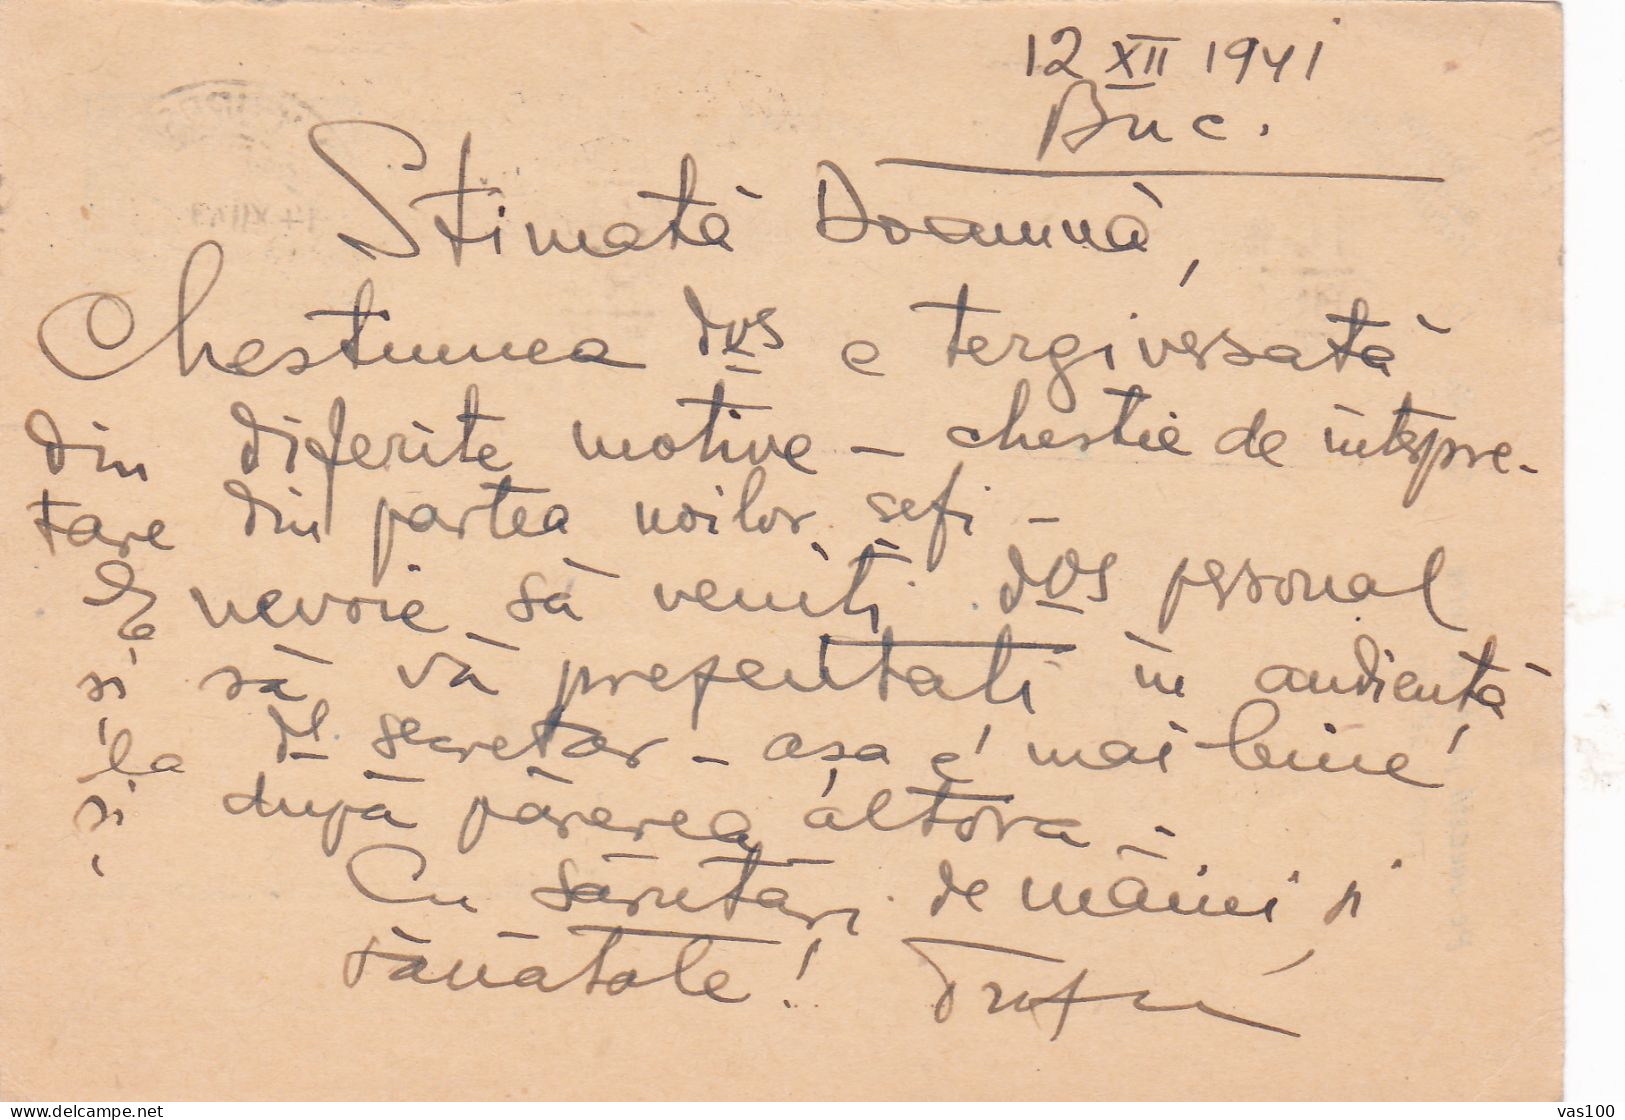 12 XII 1941
Buc.
Stimată Doamnă,
Chestiunea dvs e tergiversată
din diferite motive – chestie de interpre-
tare din partea noilor șefi –
E nevoie să veniți dvs personal
și să vă prezentați în audiență
la dl secretar – așa e mai bine
și după părerea altora –
Cu sărutări de mâini și
sănătate!
vas100